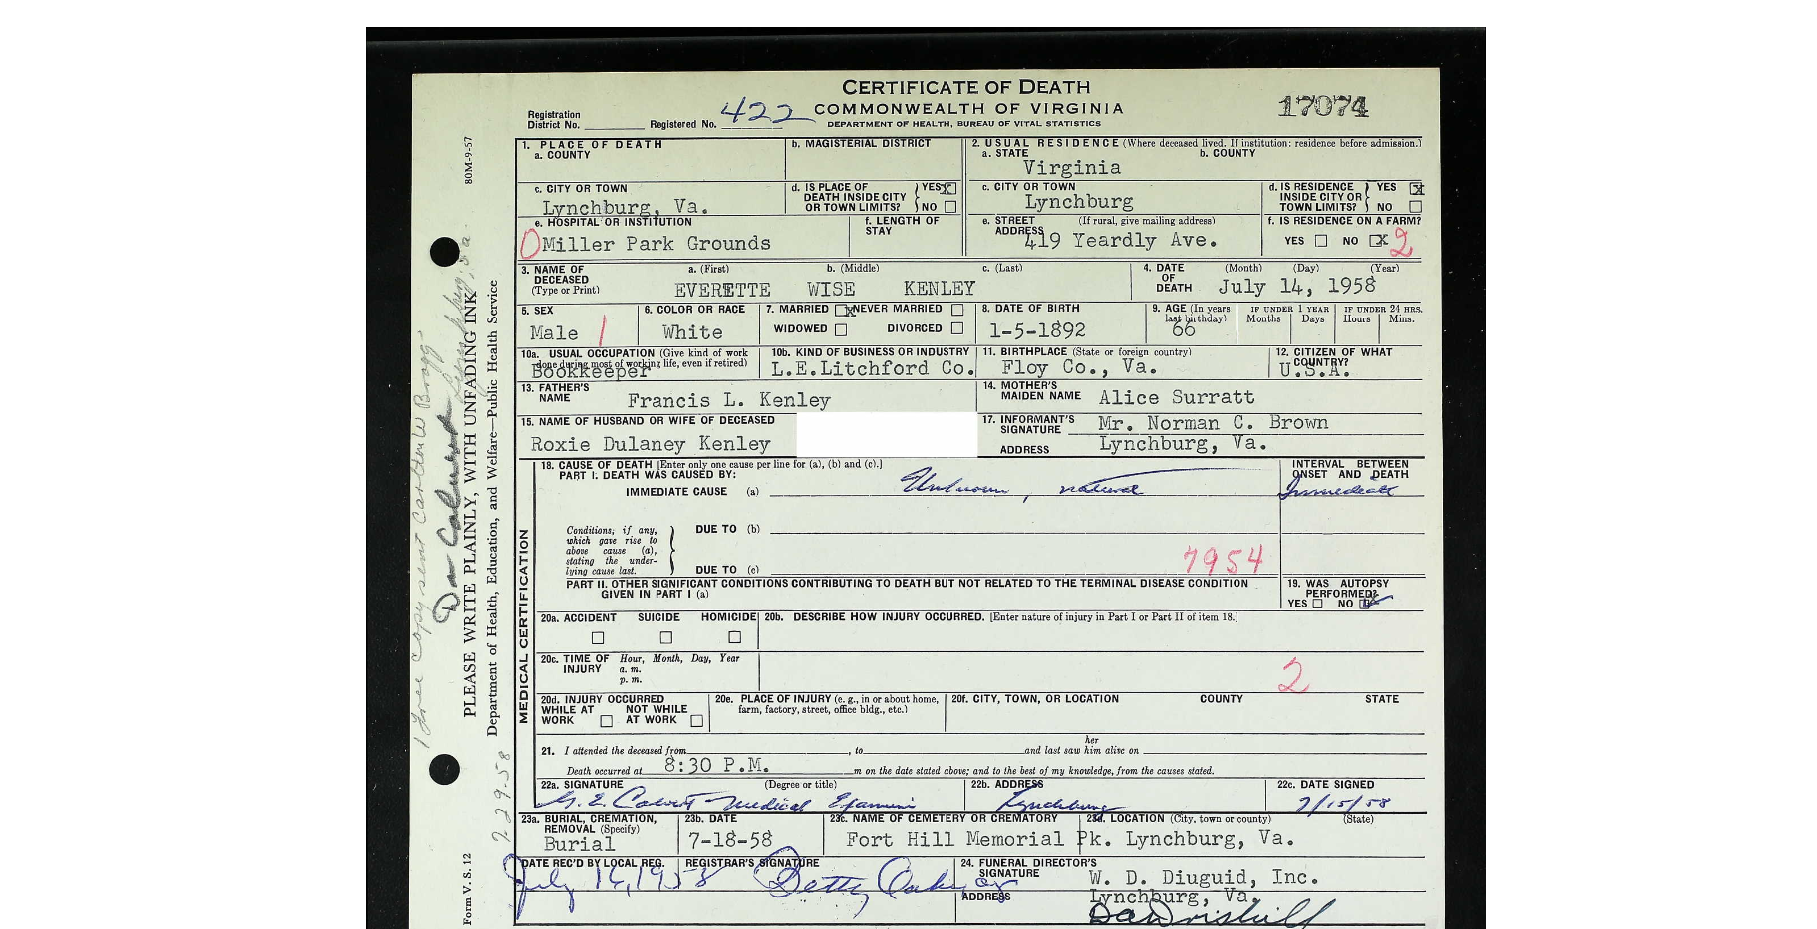 CERTIFICATE OF DEATH
COMMONWEALTH OF VIRGINIA
DEPARTMENT OF HEALTH, BUREAU OF VITAL STATISTICS
17074
Registration District No. Registered No. 422
1. PLACE OF DEATH
a. COUNTY
b. MAGISTERIAL DISTRICT
2. USUAL RESIDENCE (Where deceased lived. If institution: residence before admission.)
a. STATE Virginia b. COUNTY
c. CITY OR TOWN Lynchburg, Va.
d. IS PLACE OF DEATH INSIDE CITY OR TOWN LIMITS? YES X NO
c. CITY OR TOWN Lynchburg
d. IS RESIDENCE INSIDE CITY OR TOWN LIMITS? YES X NO
e. HOSPITAL OR INSTITUTION
0 Miller Park Grounds
f. LENGTH OF STAY
e. STREET ADDRESS (If rural, give mailing address)
419 Yeardly Ave.
f. IS RESIDENCE ON A FARM?
YES NO X 2
3. NAME OF DECEASED (Type or Print)
a. (First) b. (Middle) c. (Last)
EVERETTE WISE KENLEY
4. DATE OF DEATH (Month) (Day) (Year)
July 14, 1958
5. SEX
Male 1
6. COLOR OR RACE
White
7. MARRIED X NEVER MARRIED
WIDOWED DIVORCED
8. DATE OF BIRTH
1-5-1892
9. AGE (In years last birthday) 66
IF UNDER 1 YEAR Months Days
IF UNDER 24 HRS. Hours Mins.
10a. USUAL OCCUPATION (Give kind of work done during most of working life, even if retired)
Bookkeeper
10b. KIND OF BUSINESS OR INDUSTRY
L.E.Litchford Co.
11. BIRTHPLACE (State or foreign country)
Floy Co., Va.
12. CITIZEN OF WHAT COUNTRY?
U.S.A.
13. FATHER'S NAME Francis L. Kenley
14. MOTHER'S MAIDEN NAME Alice Surratt
15. NAME OF HUSBAND OR WIFE OF DECEASED
Roxie Dulaney Kenley
17. INFORMANT'S SIGNATURE Mr. Norman C. Brown
ADDRESS Lynchburg, Va.
MEDICAL CERTIFICATION
18. CAUSE OF DEATH [Enter only one cause per line for (a), (b) and (c).]
PART I. DEATH WAS CAUSED BY:
IMMEDIATE CAUSE (a) Unknown, natural
INTERVAL BETWEEN ONSET AND DEATH
Immediate
Conditions, if any, which gave rise to above cause (a), stating the underlying cause last.
DUE TO (b)
DUE TO (c)
7954
PART II. OTHER SIGNIFICANT CONDITIONS CONTRIBUTING TO DEATH BUT NOT RELATED TO THE TERMINAL DISEASE CONDITION GIVEN IN PART I (a)
19. WAS AUTOPSY PERFORMED?
YES NO X
20a. ACCIDENT SUICIDE HOMICIDE
20b. DESCRIBE HOW INJURY OCCURRED. [Enter nature of injury in Part I or Part II of item 18.]
20c. TIME OF INJURY Hour, Month, Day, Year
a. m.
p. m.
2
20d. INJURY OCCURRED
WHILE AT WORK NOT WHILE AT WORK
20e. PLACE OF INJURY (e. g., in or about home, farm, factory, street, office bldg., etc.)
20f. CITY, TOWN, OR LOCATION COUNTY STATE
21. I attended the deceased from , to and last saw her him alive on
Death occurred at 8:30 P.M. m on the date stated above; and to the best of my knowledge, from the causes stated.
22a. SIGNATURE (Degree or title)
Calvert Medical Examiner
22b. ADDRESS
Lynchburg
22c. DATE SIGNED
7/15/58
23a. BURIAL, CREMATION, REMOVAL (Specify)
Burial
23b. DATE
7-18-58
23c. NAME OF CEMETERY OR CREMATORY
Fort Hill Memorial Pk.
23d. LOCATION (City, town or county) (State)
Lynchburg, Va.
DATE REC'D BY LOCAL REG.
July 16, 1958
REGISTRAR'S SIGNATURE
Betty
24. FUNERAL DIRECTOR'S SIGNATURE W. D. Diuguid, Inc.
ADDRESS Lynchburg, Va.
Dan Driskill
80M-9-57
PLEASE WRITE PLAINLY, WITH UNFADING INK
Department of Health, Education, and Welfare—Public Health Service
Form V. S. 12
7-29-58